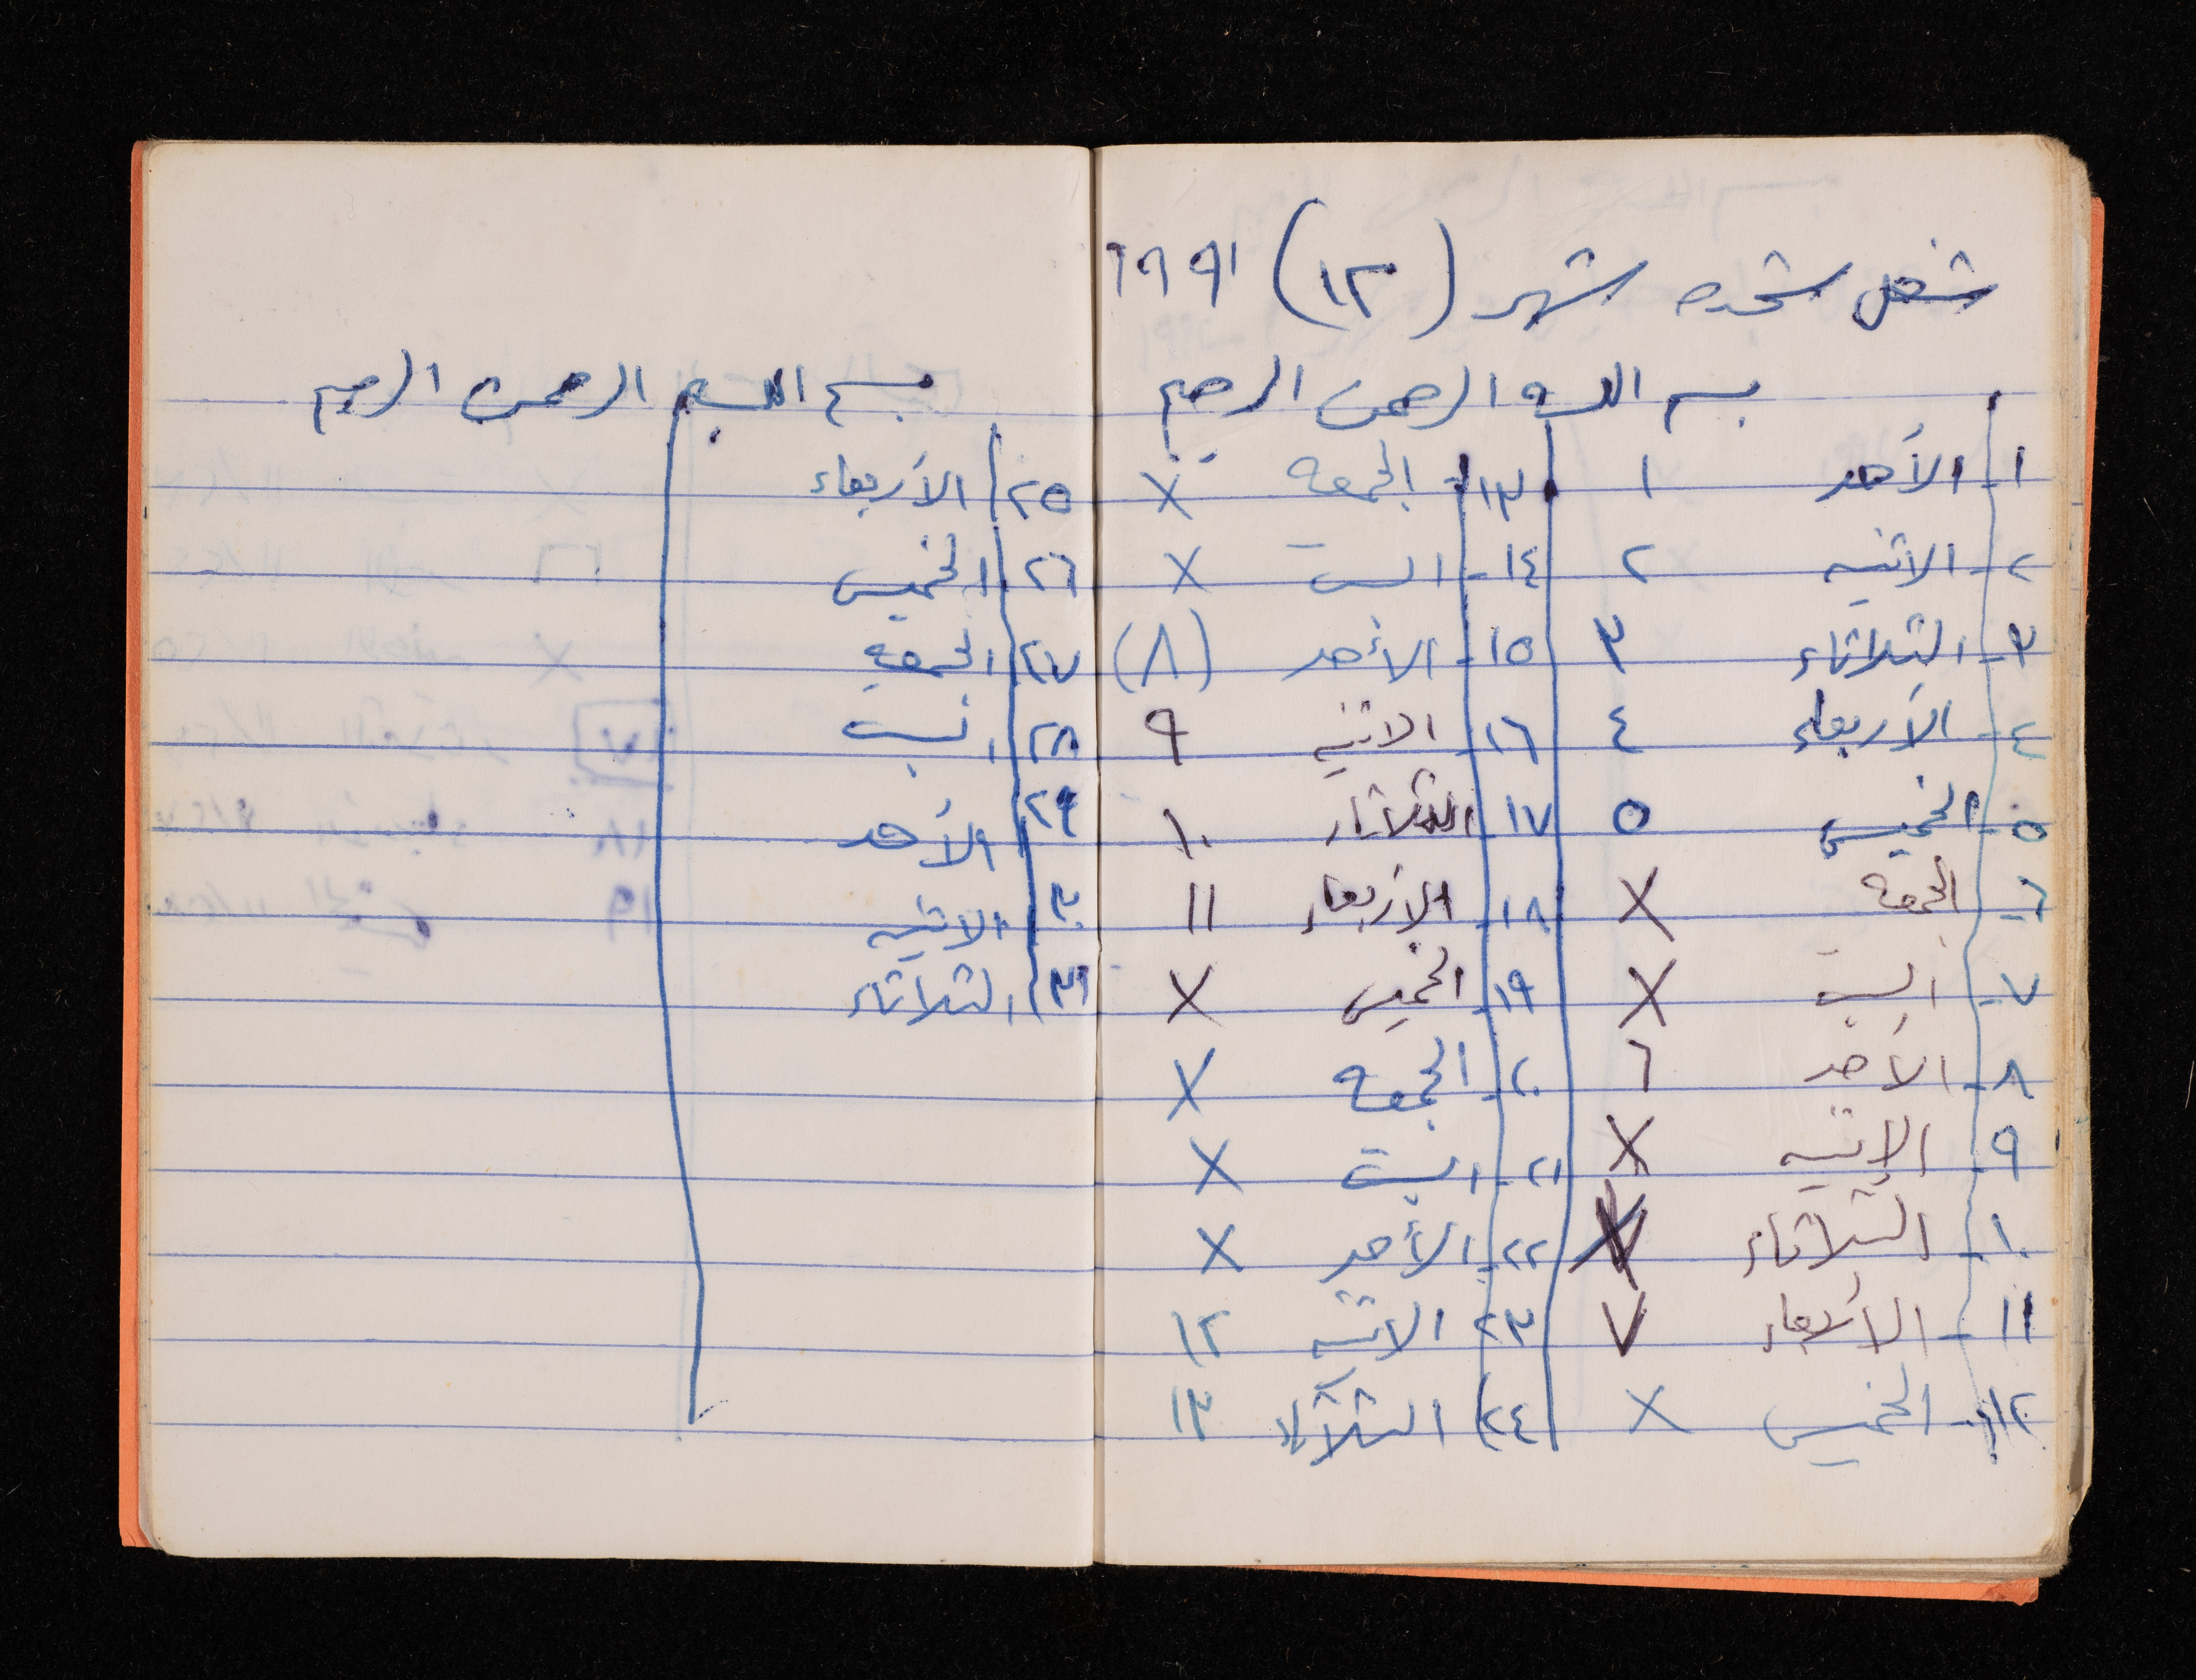 شغل شحده شهر (١٢) ١٩٩٦
بسم الله الرحمن الرحيم
١- الأحد ١
٢- الاثنين ٢
٣- الثلاثاء ٣
٤- الأربعاء ٤
٥- الخميس ٥
٦- الجمعه X
٧- السبت X
٨- الأحد ٦
٩- الإثنين X
١٠- الثلاثاء X
١١- الأربعاء ٧
١٢- الخميس X
١٣- الجمعه X
١٤- السبت X
١٥- الأحد (٨)
١٦- الاثنين ٩
١٧- الثلاثاء ١٠
١٨- الأربعاء ١١
١٩- الخميس X
٢٠- الجمعه X
٢١- السبت X
٢٢- الأحد X
٢٣ الاثنين ١٢
٢٤) الثلاثاء ١٣
بسم الله الرحمن الرحيم
٢٥ الأربعاء
٢٦ الخميس
٢٧ الجمعه
٢٨ السبت
٢٩ الأحد
٣٠ الاثنين
٣١ الثلاثاء